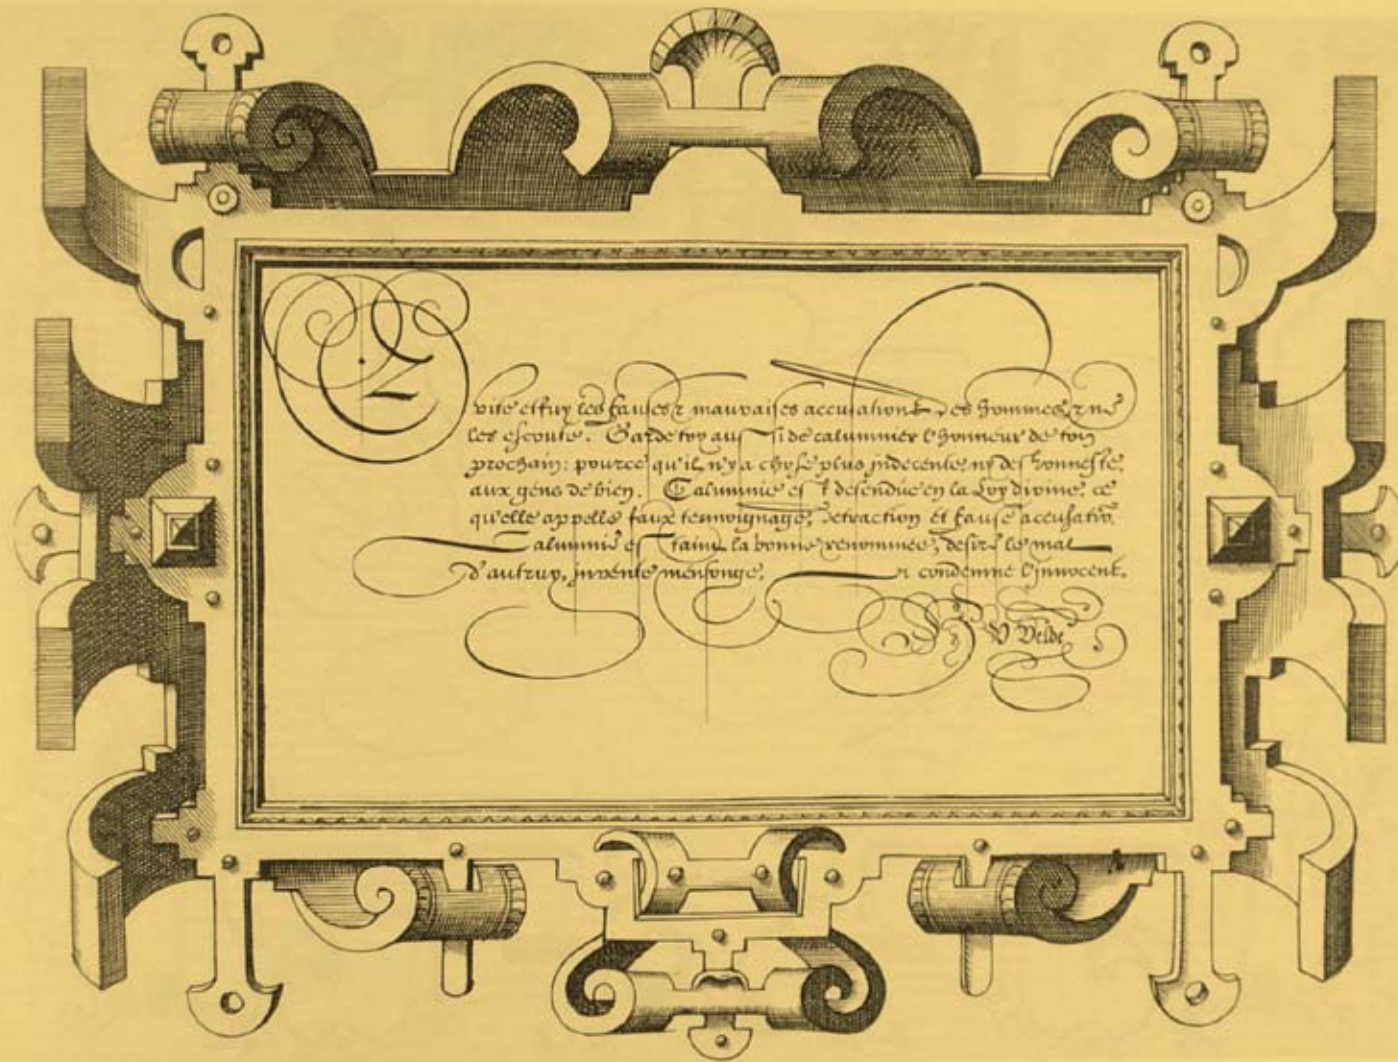 Evite et fuy les fauses & mauvaises accusations des hommes, & ne
les escoute. Garde toy aussi de calumnier l'honneur de ton
prochain: pource qu'il n'y a chose plus indecente, ny deshonneste,
aux gens de bien. Calumnie est defendue en la Loy divine, ce
qu'elle appelle faux temoignage, detraction et fause accusatiō.
Calumnie estaint la bonne renommée, desire le mal
d'autruy, invente mensonge, & condemne l'innocent.
V Velde